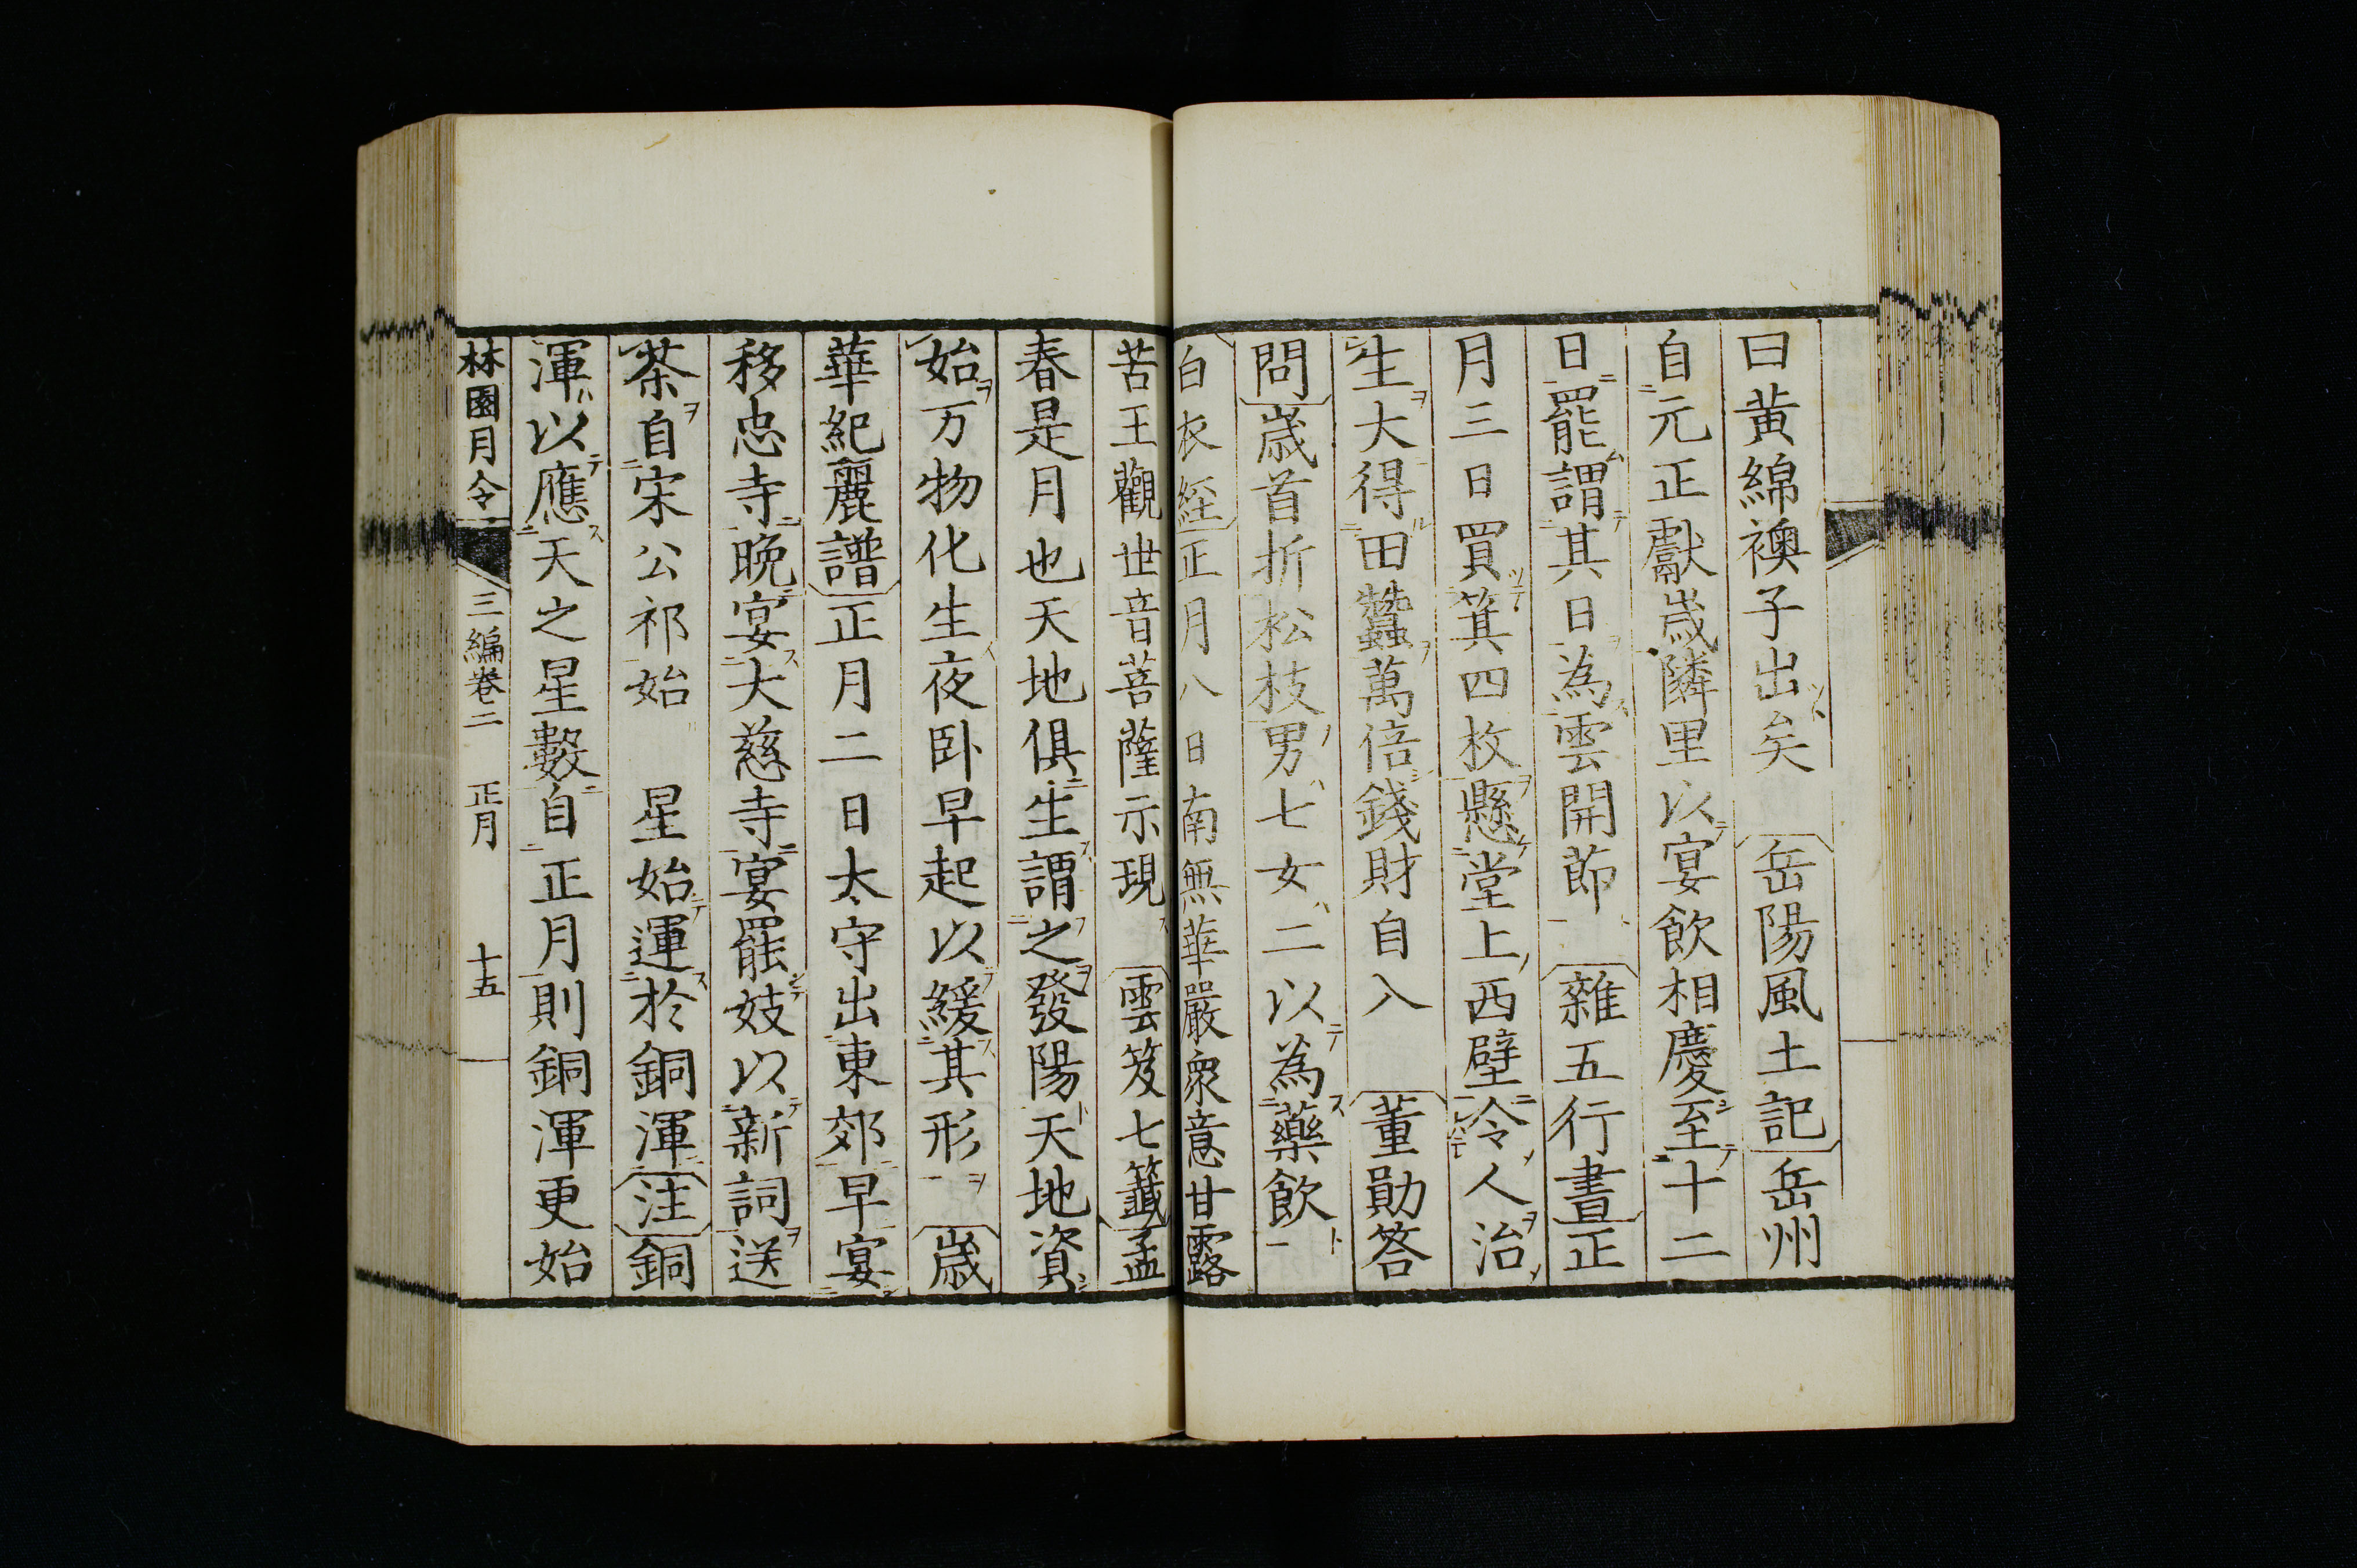 曰黄綿襖子出矣　岳陽風土記岳州
自元正獻歳隣里以宴飲相慶至十二
日罷謂其日為雲開節　雜五行書正
月三日買箕四枚懸堂上西壁令人治
生大得田蠶萬倍錢財自入　董勛答
問歳首折松枝男七女二以為藥飲
白衣経正月八日南無華嚴衆意甘露
苦王觀世音菩薩示現　雲笈七籤孟
春是月也天地俱生謂之發陽天地資
始万物化生夜卧早起以緩其形　歳
華紀麗譜正月二日太守出東郊早宴
移忠寺晩宴大慈寺宴罷妓以新詞送
茶自宋公祁始　星始運於銅渾注銅
渾以應天之星數自正月則銅渾更始
林園月令　三編巻二　正月　十五